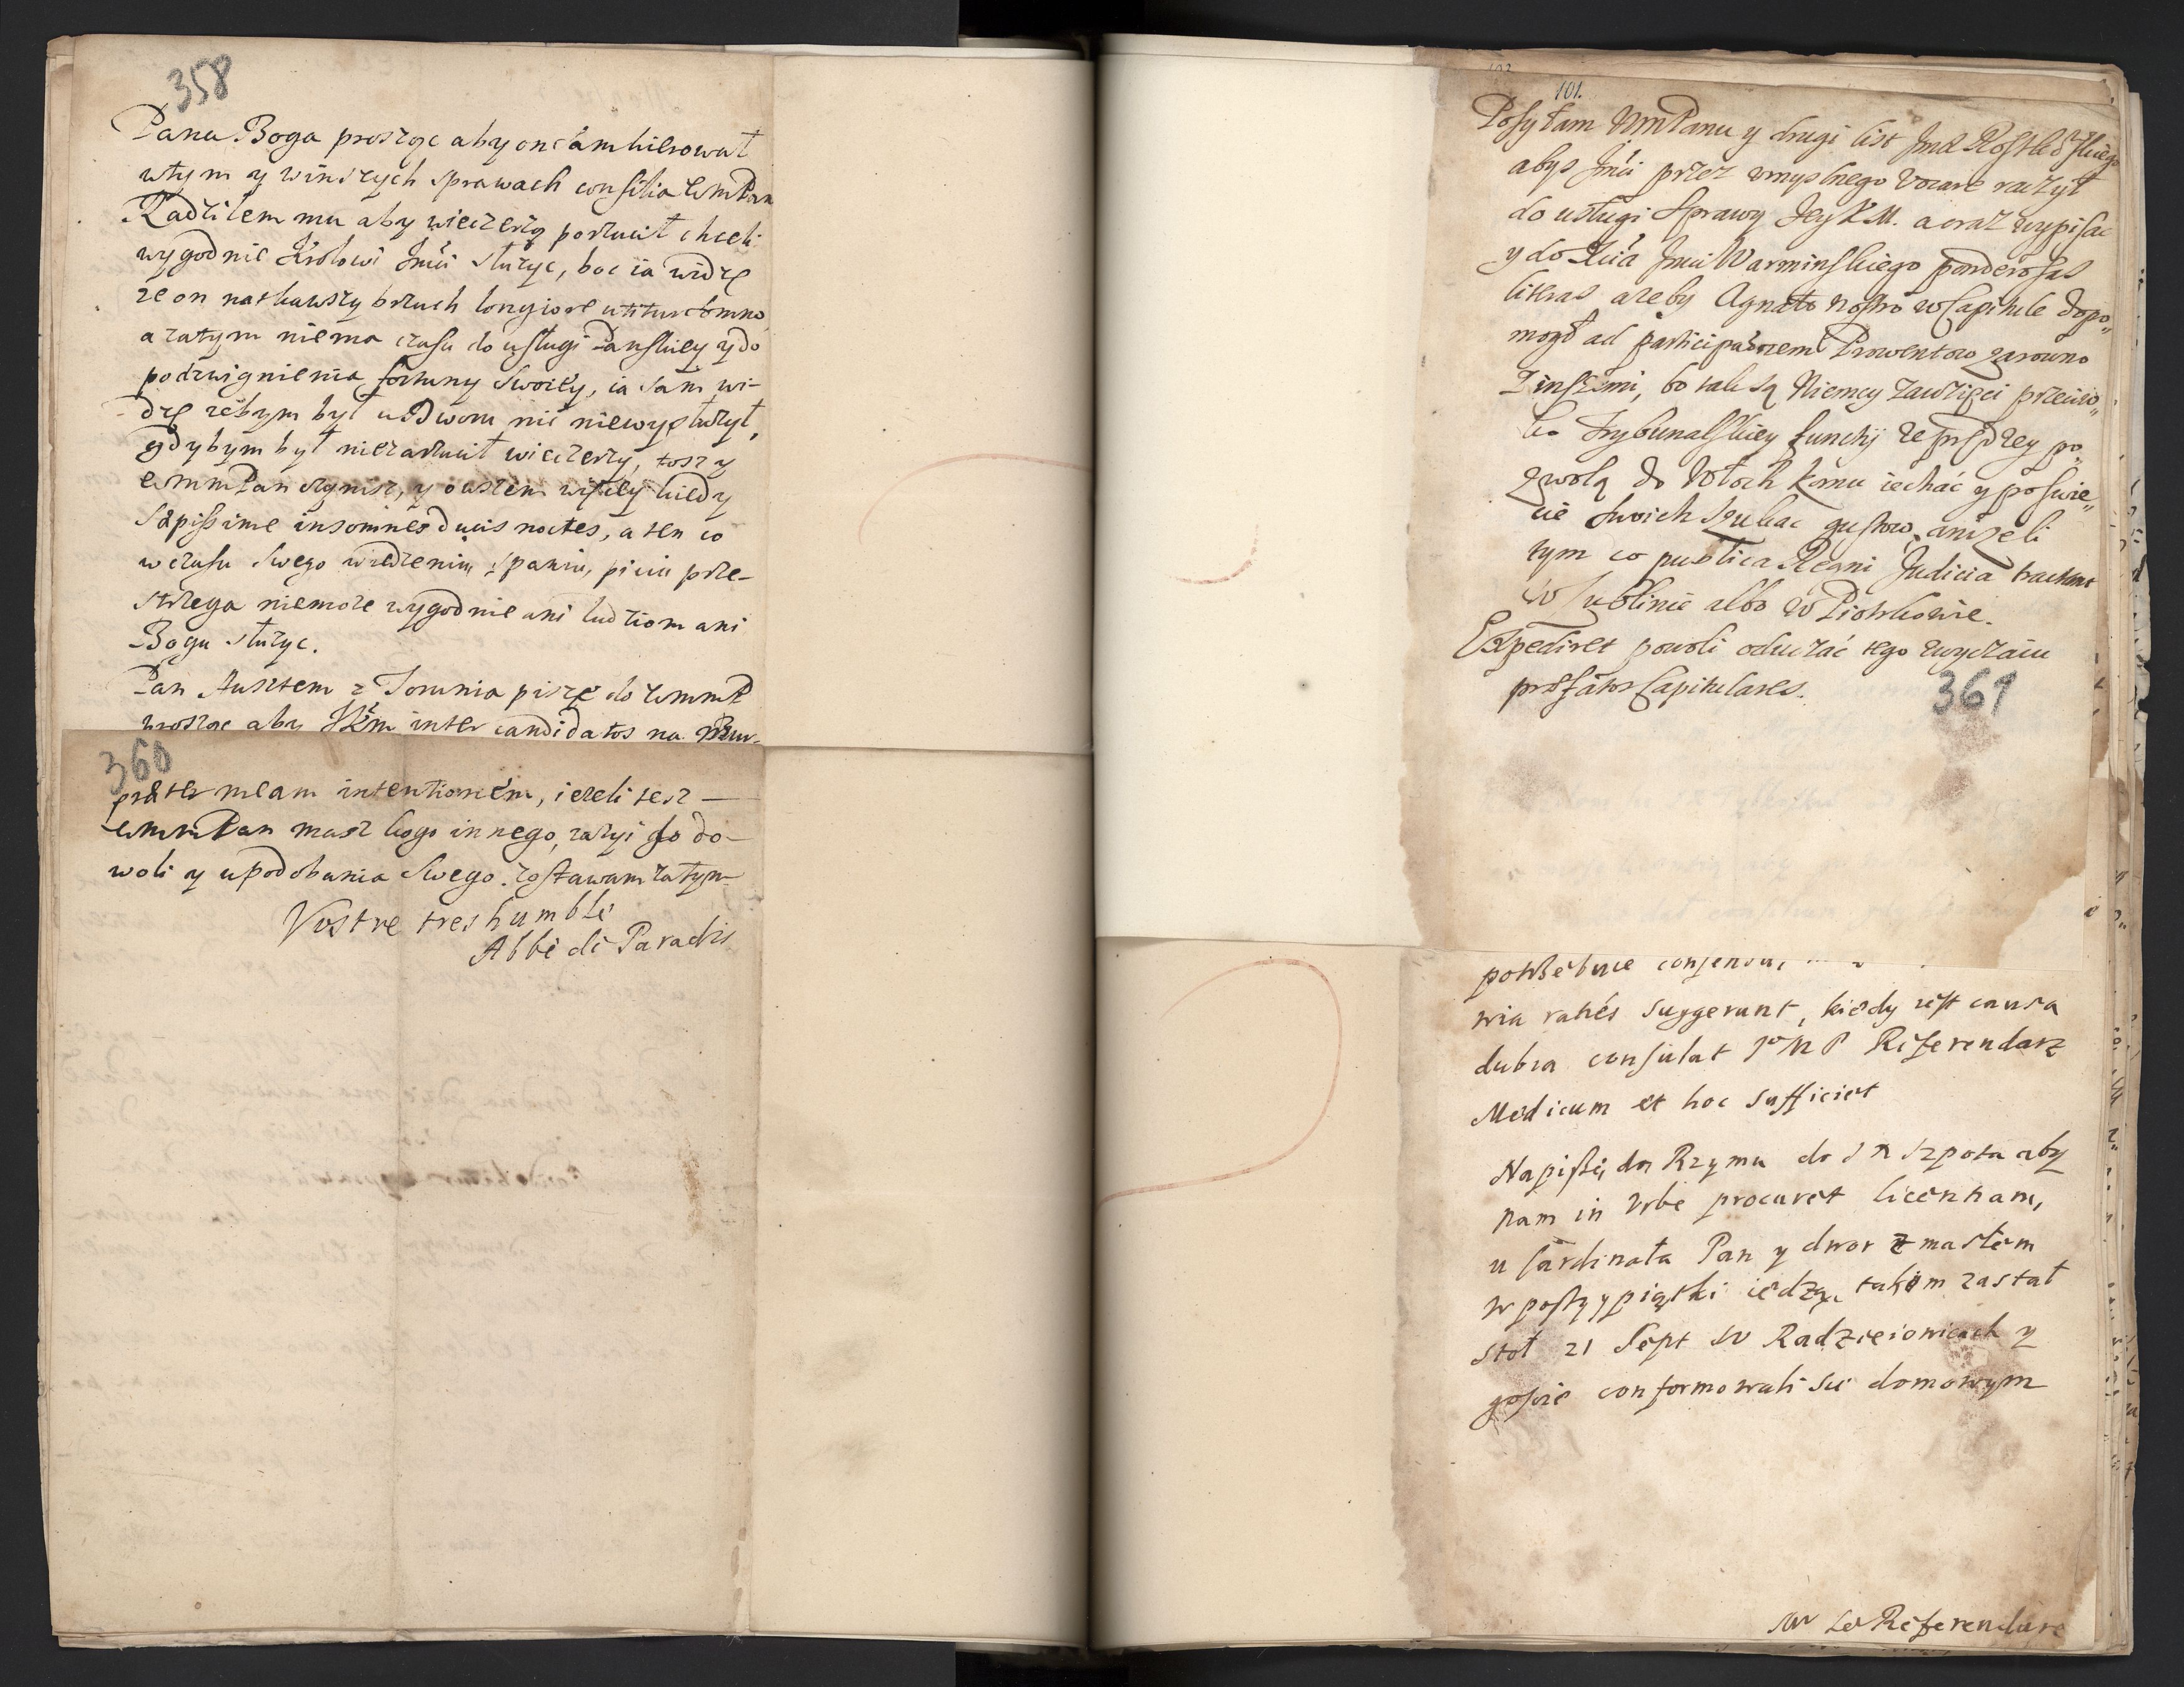 358
Pana Boga proszoc aby on sam kierowat
wtym y winszych sprawach consilia WmPan
Radzilem mu aby wieczerzą porzucit chceli
wygodnie Krolowi Jmći służyc, boc ia widzę
ze on natkawszy brzuch longiore utitur somno
a zatym niema czasu do usługi Panskiey y do
podzwignienia fortuny swoiey, ia sam wi-
dzę zebym był u Dworu nic niewysłuzył,
gdybym był niezarzucił wieczerzy, tosz y
WmmPan czynisz, y owszem więcey kiedy
sæpissime insomnes ducis noctes, a ten co
wczasu swego w iedzeniu, spaniu, piciu prze-
strzega niemoze wygodnie ani ludziom ani
Bogu służyc.
Pan Austem z Torunia pisze do WmmP
proszoc aby JKm inter candidatos na Bur-
360
præter meam intentionem, iezeli tesz
WmmPan masz kogo innego, zazyi go do
woli y upodobania swego. zostawam zatym
Vostre tres humble
Abbé de Paradis
101.
Posyłam WmPanu y drugi list Jmć
abys Jmći przez umyslnego vocare raczył
do usługi sprawy Jey K M. a oraz wypisac
y do Xcia Jmci Warminskiego ponderosas
literas azeby Agnato nostro w Capitule dopo„
mogł ad participationem Prowentow zarowno
z inszemi, bo tak są Niemcy zawzięci przeciw„
ko Trybunalskiey funcky ze prędzey po„
zwolą do Włoch komu iechać y poswie„
cie swoich szukac gustow, anizeli
tym co publica Regni Judicia tractant
w Lublinie albo w Piotrkowie.
Expediret powoli oduczać tego zwyczaiu
præfatos Capitulares.
361
potrzebuie consensu,
nia raties suggerunt, kiedy iest causa
dubia consulat JoM P Referendarz
Medicum et hoc sufficiet
Napiszę do Rzymu do J X Szpota aby
nam in Urbe procuret licentiam,
u Cardinała Pan y dwor z masłem
w posty y piątki iedzą, takem zastał
stoł 21 Sept w Radzieiowicach y
goscie conformowali sie domowym
Mr Le Referendare